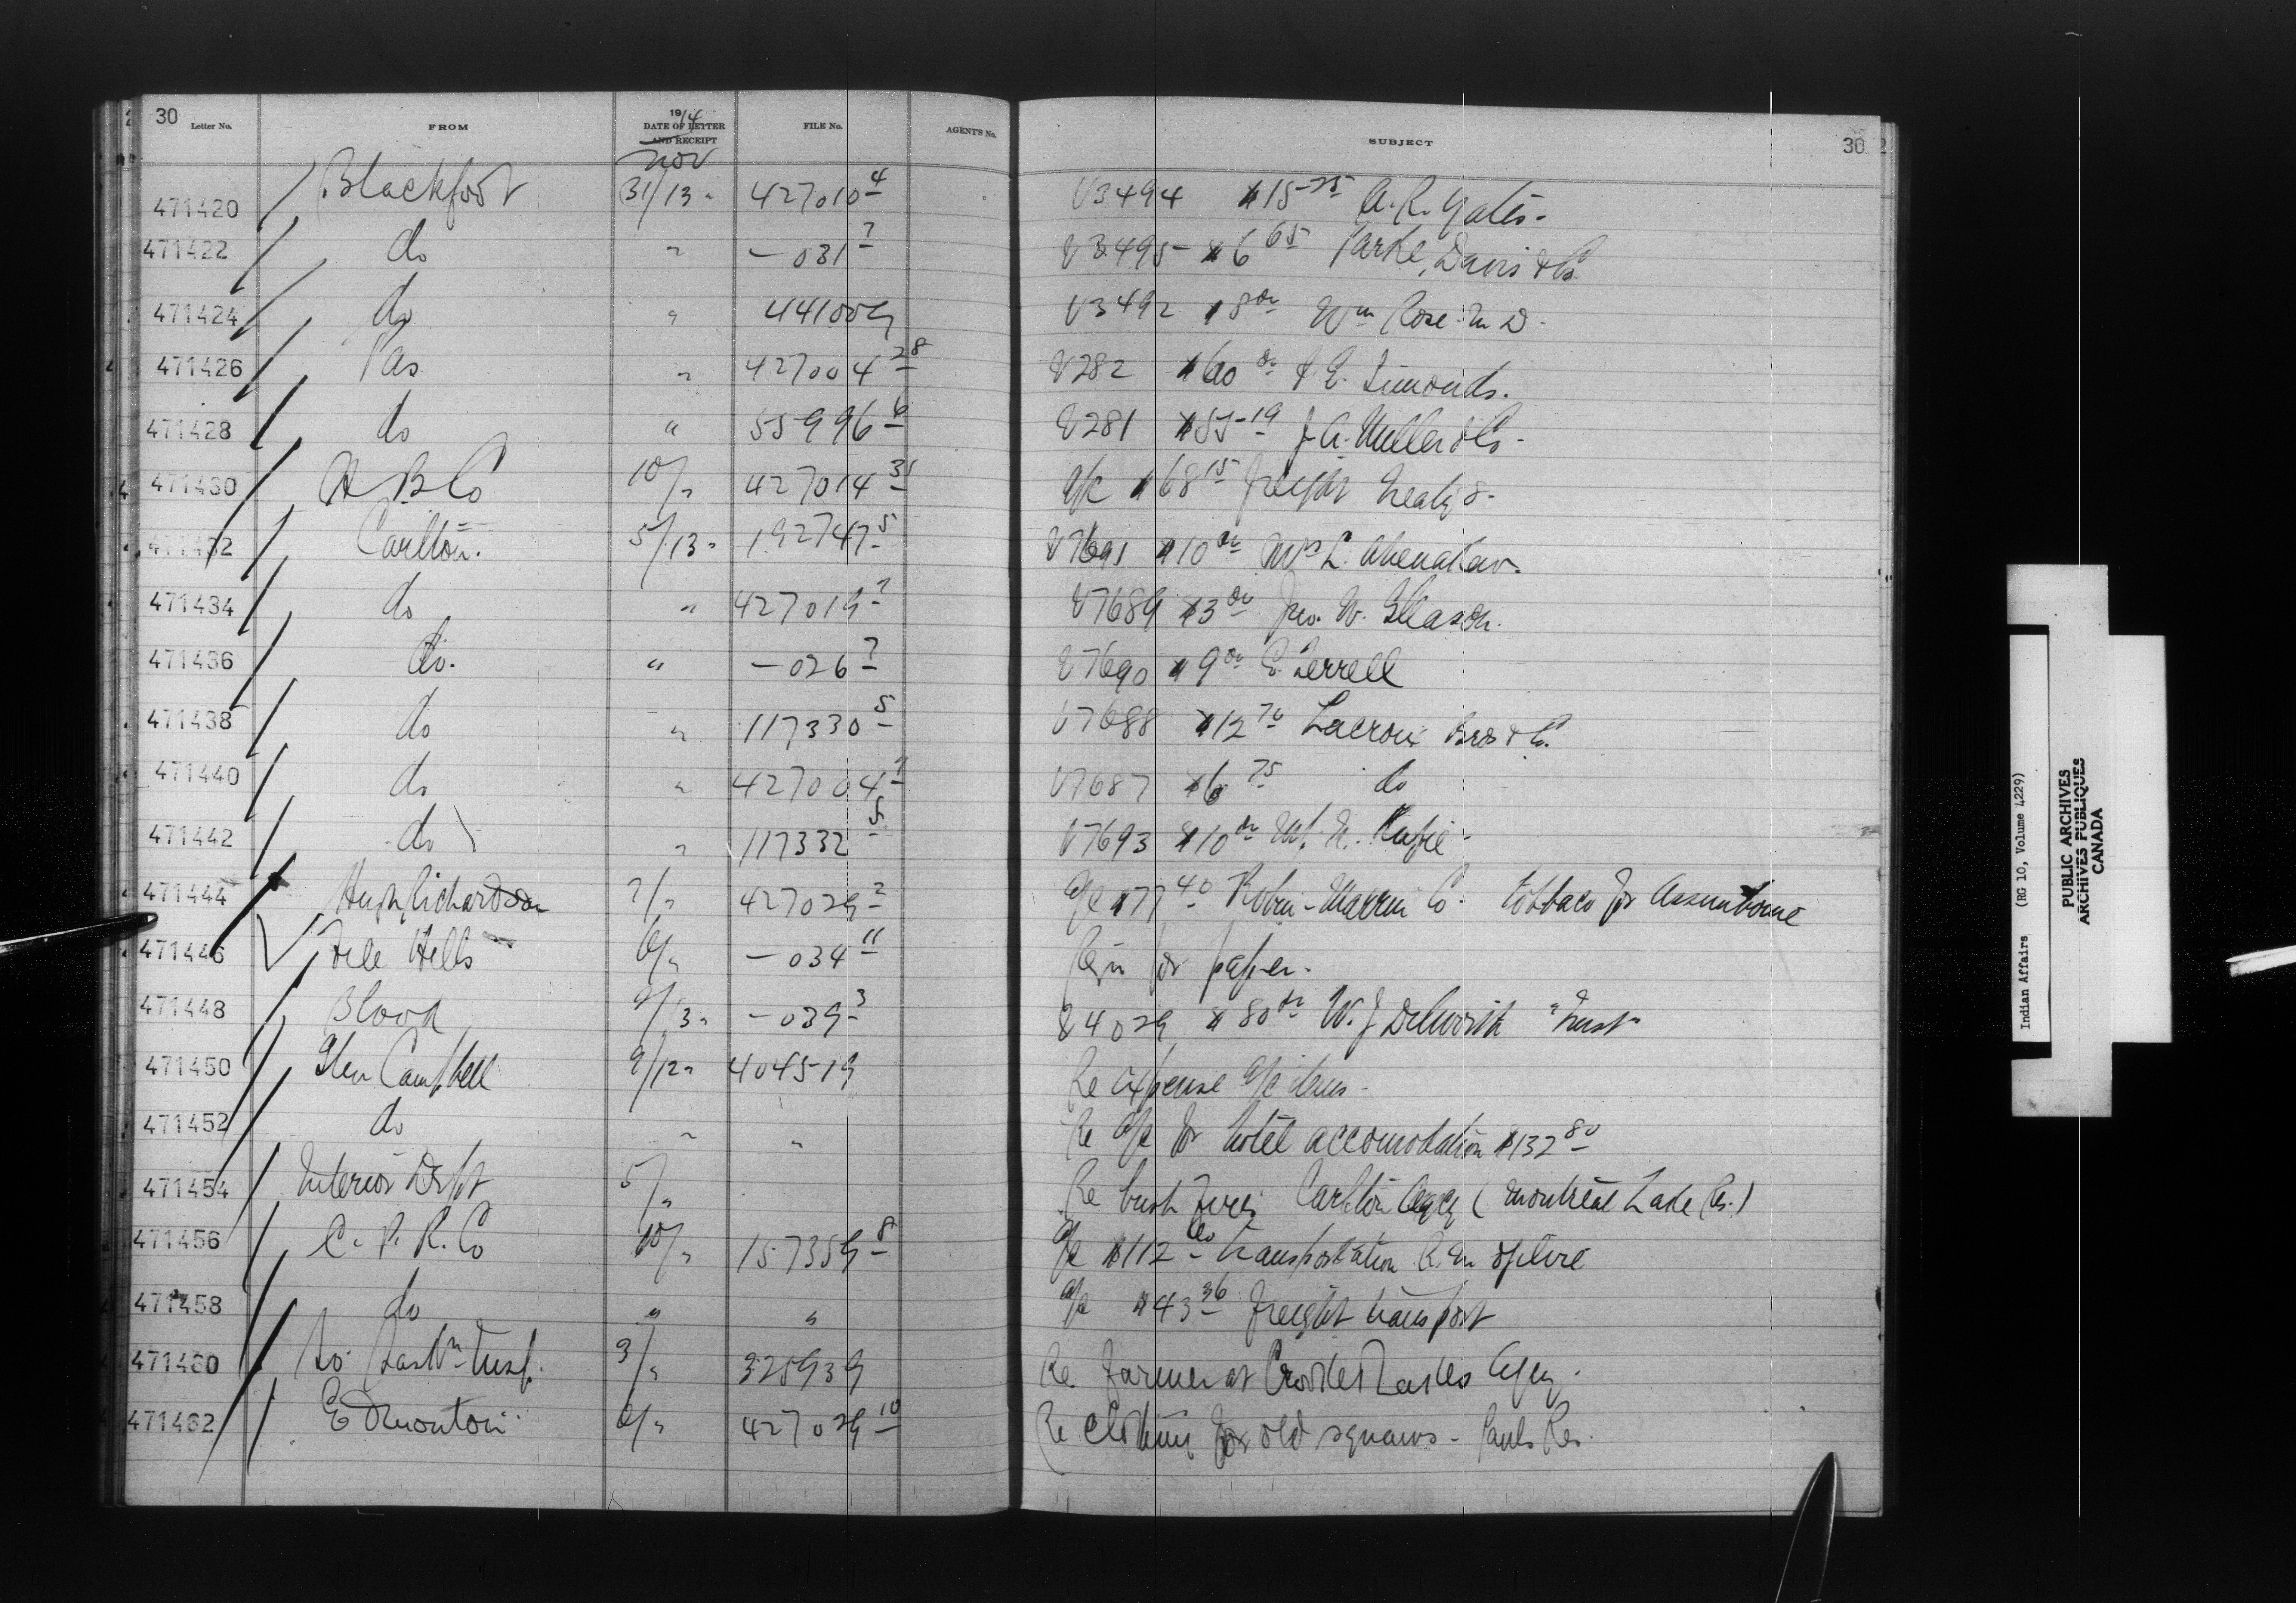 30 Letter No. FROM 1914 DATE OF LETTER AND RECEIPT FILE No. AGENT'S No. SUBJECT 30
Nov
471420 Blackfoot 31/13 " 427010 4 V3494 $15 25 A. R. Yates.
471422 do " — 031 7 V3495 $6 65 Parke, Davis & Co
471424 do " 441009 V3492 $8 00 Wm Rose M D.
471426 Pas " 427004 28 V282 $60 00 E. Simonds.
471428 do " 55996 6 V281 $55 19 J. A. & Co
471430 H B Co 10/" 427014 31 a/c $68 15 freight Treaty 8.
471432 Carlton. 5/13 " 192747 5 V7691 $10 00 Mrs L. Ahenakew.
471434 do " 427019 7 V7689 $3 00 Jno. W. Gleason.
471436 do. " — 026 7 V7690 $9 00 Ferrell
471438 do " 117330 5 V7688 $12 70 Lacroix Bros & Co.
471440 do " 427004 7 V7687 $6 75 do
471442 do " 117332 5 V7693 $10 00
471444 Hugh Richardson 7/" 427029 2 a/c $77 40 Co. tobbaco for Assiniboine
471446 File Hills 6/" — 034 11 Reqn for paper.
471448 Blood 9/13 " — 039 3 V4029 $80 00 W. J. Dilworth "Trust"
471450 Glen Campbell 9/12 " 404519 Re expense a/c
471452 do " " Re a/c for hotel accomodation $132 80
471454 Interior Dept 5/" Re bush fires Carlton Agcy (Montreal Lake Res.)
471456 C. P. R. Co 10/" 157359 8 a/c $112 60 transportation
471458 do " " a/c $43 36 freight transport
471460 So. Saskn Insp. 3/" 325939 Re farmer at Crooked Lakes Agcy.
471462 Edmonton 6/" 427029 10 Re clothing for old squaws - Pauls Res.
Indian Affairs (RG 10, Volume 4229)
PUBLIC ARCHIVES
ARCHIVES PUBLIQUES
CANADA